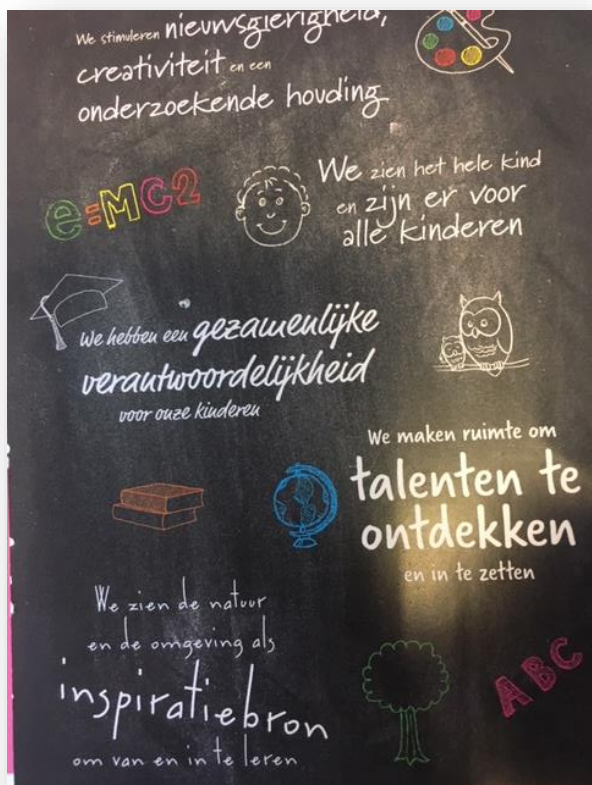 We stimuleren nieuwsgierigheid,
creativiteit en een
onderzoekende houding
e=MC2
We zien het hele kind
en zijn er voor
alle kinderen
We hebben een gezamenlijke
verantwoordelijkheid
voor onze kinderen
We maken ruimte om
talenten te
ontdekken
en in te zetten
We zien de natuur
en de omgeving als
inspiratiebron
om van en in te leren
ABC